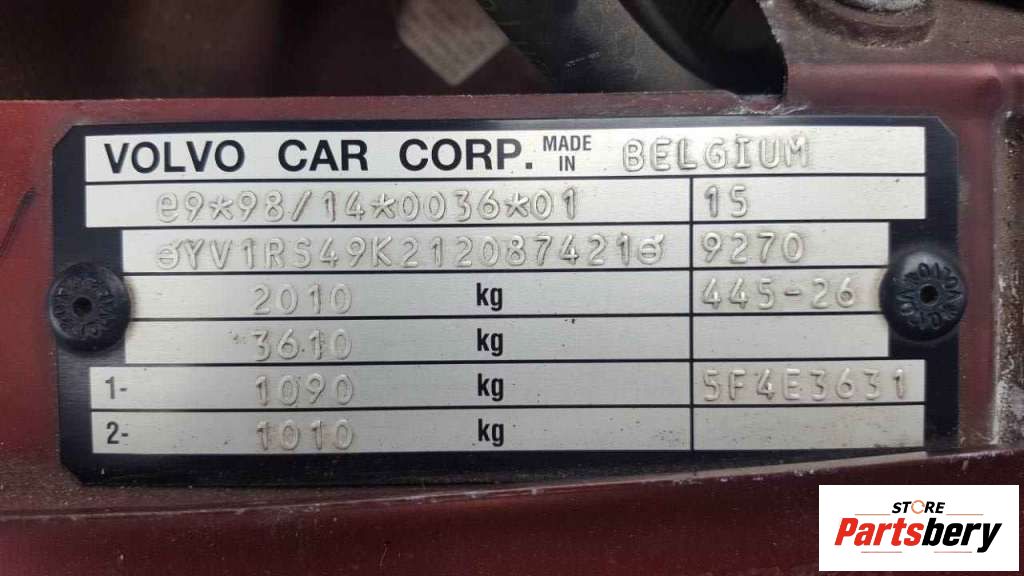 VOLVO CAR CORP. MADE IN BELGIUM
e9*98/14*0036*01 15
YV1RS49K212087421 9270
2010 kg 445-26
3610 kg
1- 1090 kg 5F4E3631
2- 1010 kg
STORE
Partsbery